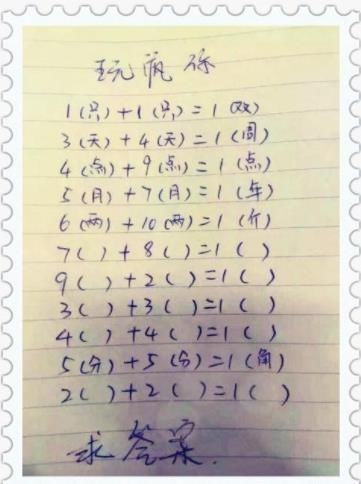 玩疯你
1(只)+1(只)=1(双)
3(天)+4(天)=1(周)
4(点)+9(点)=1(点)
5(月)+7(月)=1(年)
6(两)+10(两)=1(斤)
7( )+8( )=1( )
9( )+2( )=1( )
3( )+3( )=1( )
4( )+4( )=1( )
5(分)+5(分)=1(角)
2( )+2( )=1( )
求答案.